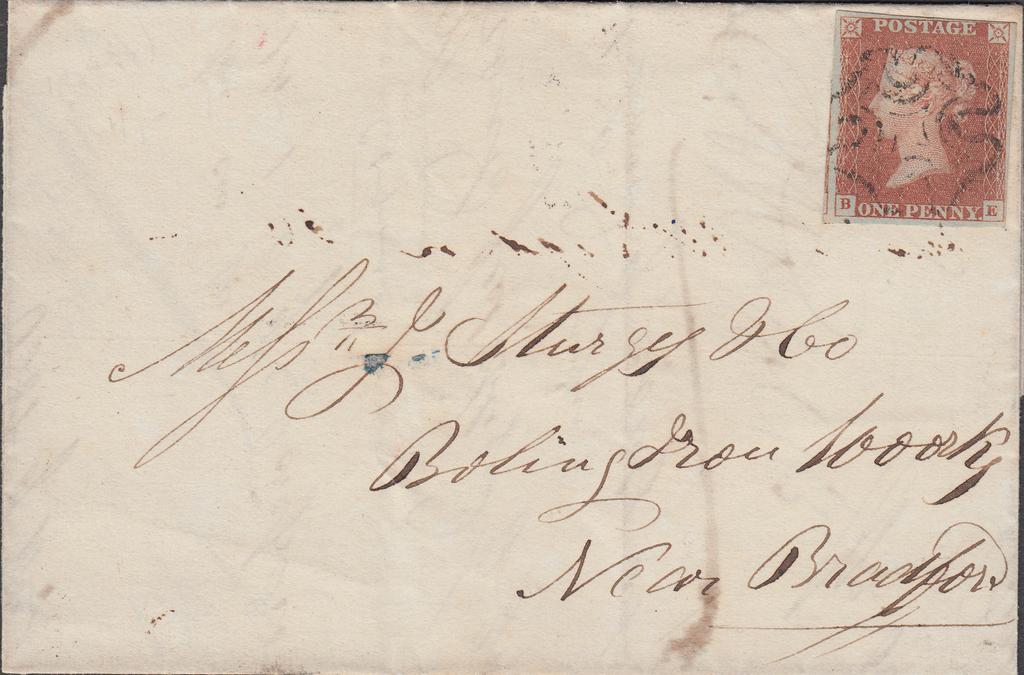 POSTAGE
B ONE PENNY. E
Messrs J Sturges & Co
Boling Iron Woorks
Near Bradford